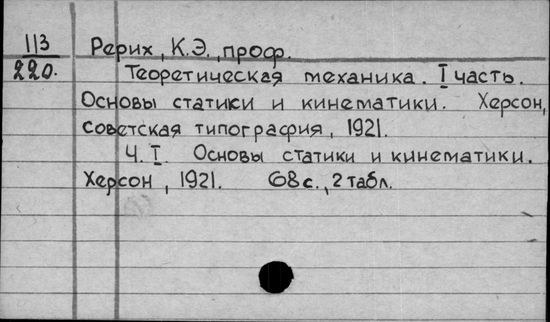 113 Рерих, К.Э., проф.
220. Теоретическая механика. I часть.
Основы статики и кинематики. Херсон,
советская типография, 1921.
Ч. I. Основы статики и кинематики.
Херсон, 1921. 68 с., 2 табл.